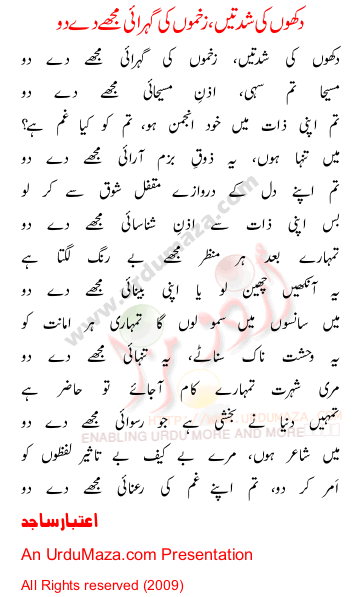 دکھوں کی شدتیں، زخموں کی گہرائی مجھے دے دو
دکھوں کی شدتیں، زخموں کی گہرائی مجھے دے دو
مسیحا تم سہی، اذنِ مسیحائی مجھے دے دو
تم اپنی ذات میں خود انجمن ہو، تم کو کیا غم ہے؟
میں تنہا ہوں، یہ ذوقِ بزم آرائی مجھے دے دو
تم اپنے دل کے دروازے مقفل شوق سے کر لو
بس اپنی ذات سے اذنِ شناسائی مجھے دے دو
تمہارے بعد ہر منظر مجھے بے رنگ لگتا ہے
یہ آنکھیں چھین لو یا اپنی بینائی مجھے دے دو
میں سانسوں میں سمو لوں گا تمہاری ہر امانت کو
یہ وحشت ناک سناٹے، یہ تنہائی مجھے دے دو
مری شہرت تمہارے کام آجائے تو حاضر ہے
تمہیں دنیا نے بخشی ہے جو رسوائی مجھے دے دو
میں شاعر ہوں، مرے بے کیف بے تاثیر لفظوں کو
اَمر کر دو، تم اپنے غم کی رعنائی مجھے دے دو
اعتبار ساجد
An UrduMaza.com Presentation
All Rights reserved (2009)
www.urdumaza.com
اردو مزا
HTTP://WWW.URDUMAZA.COM
ENABLING URDU MORE AND MORE